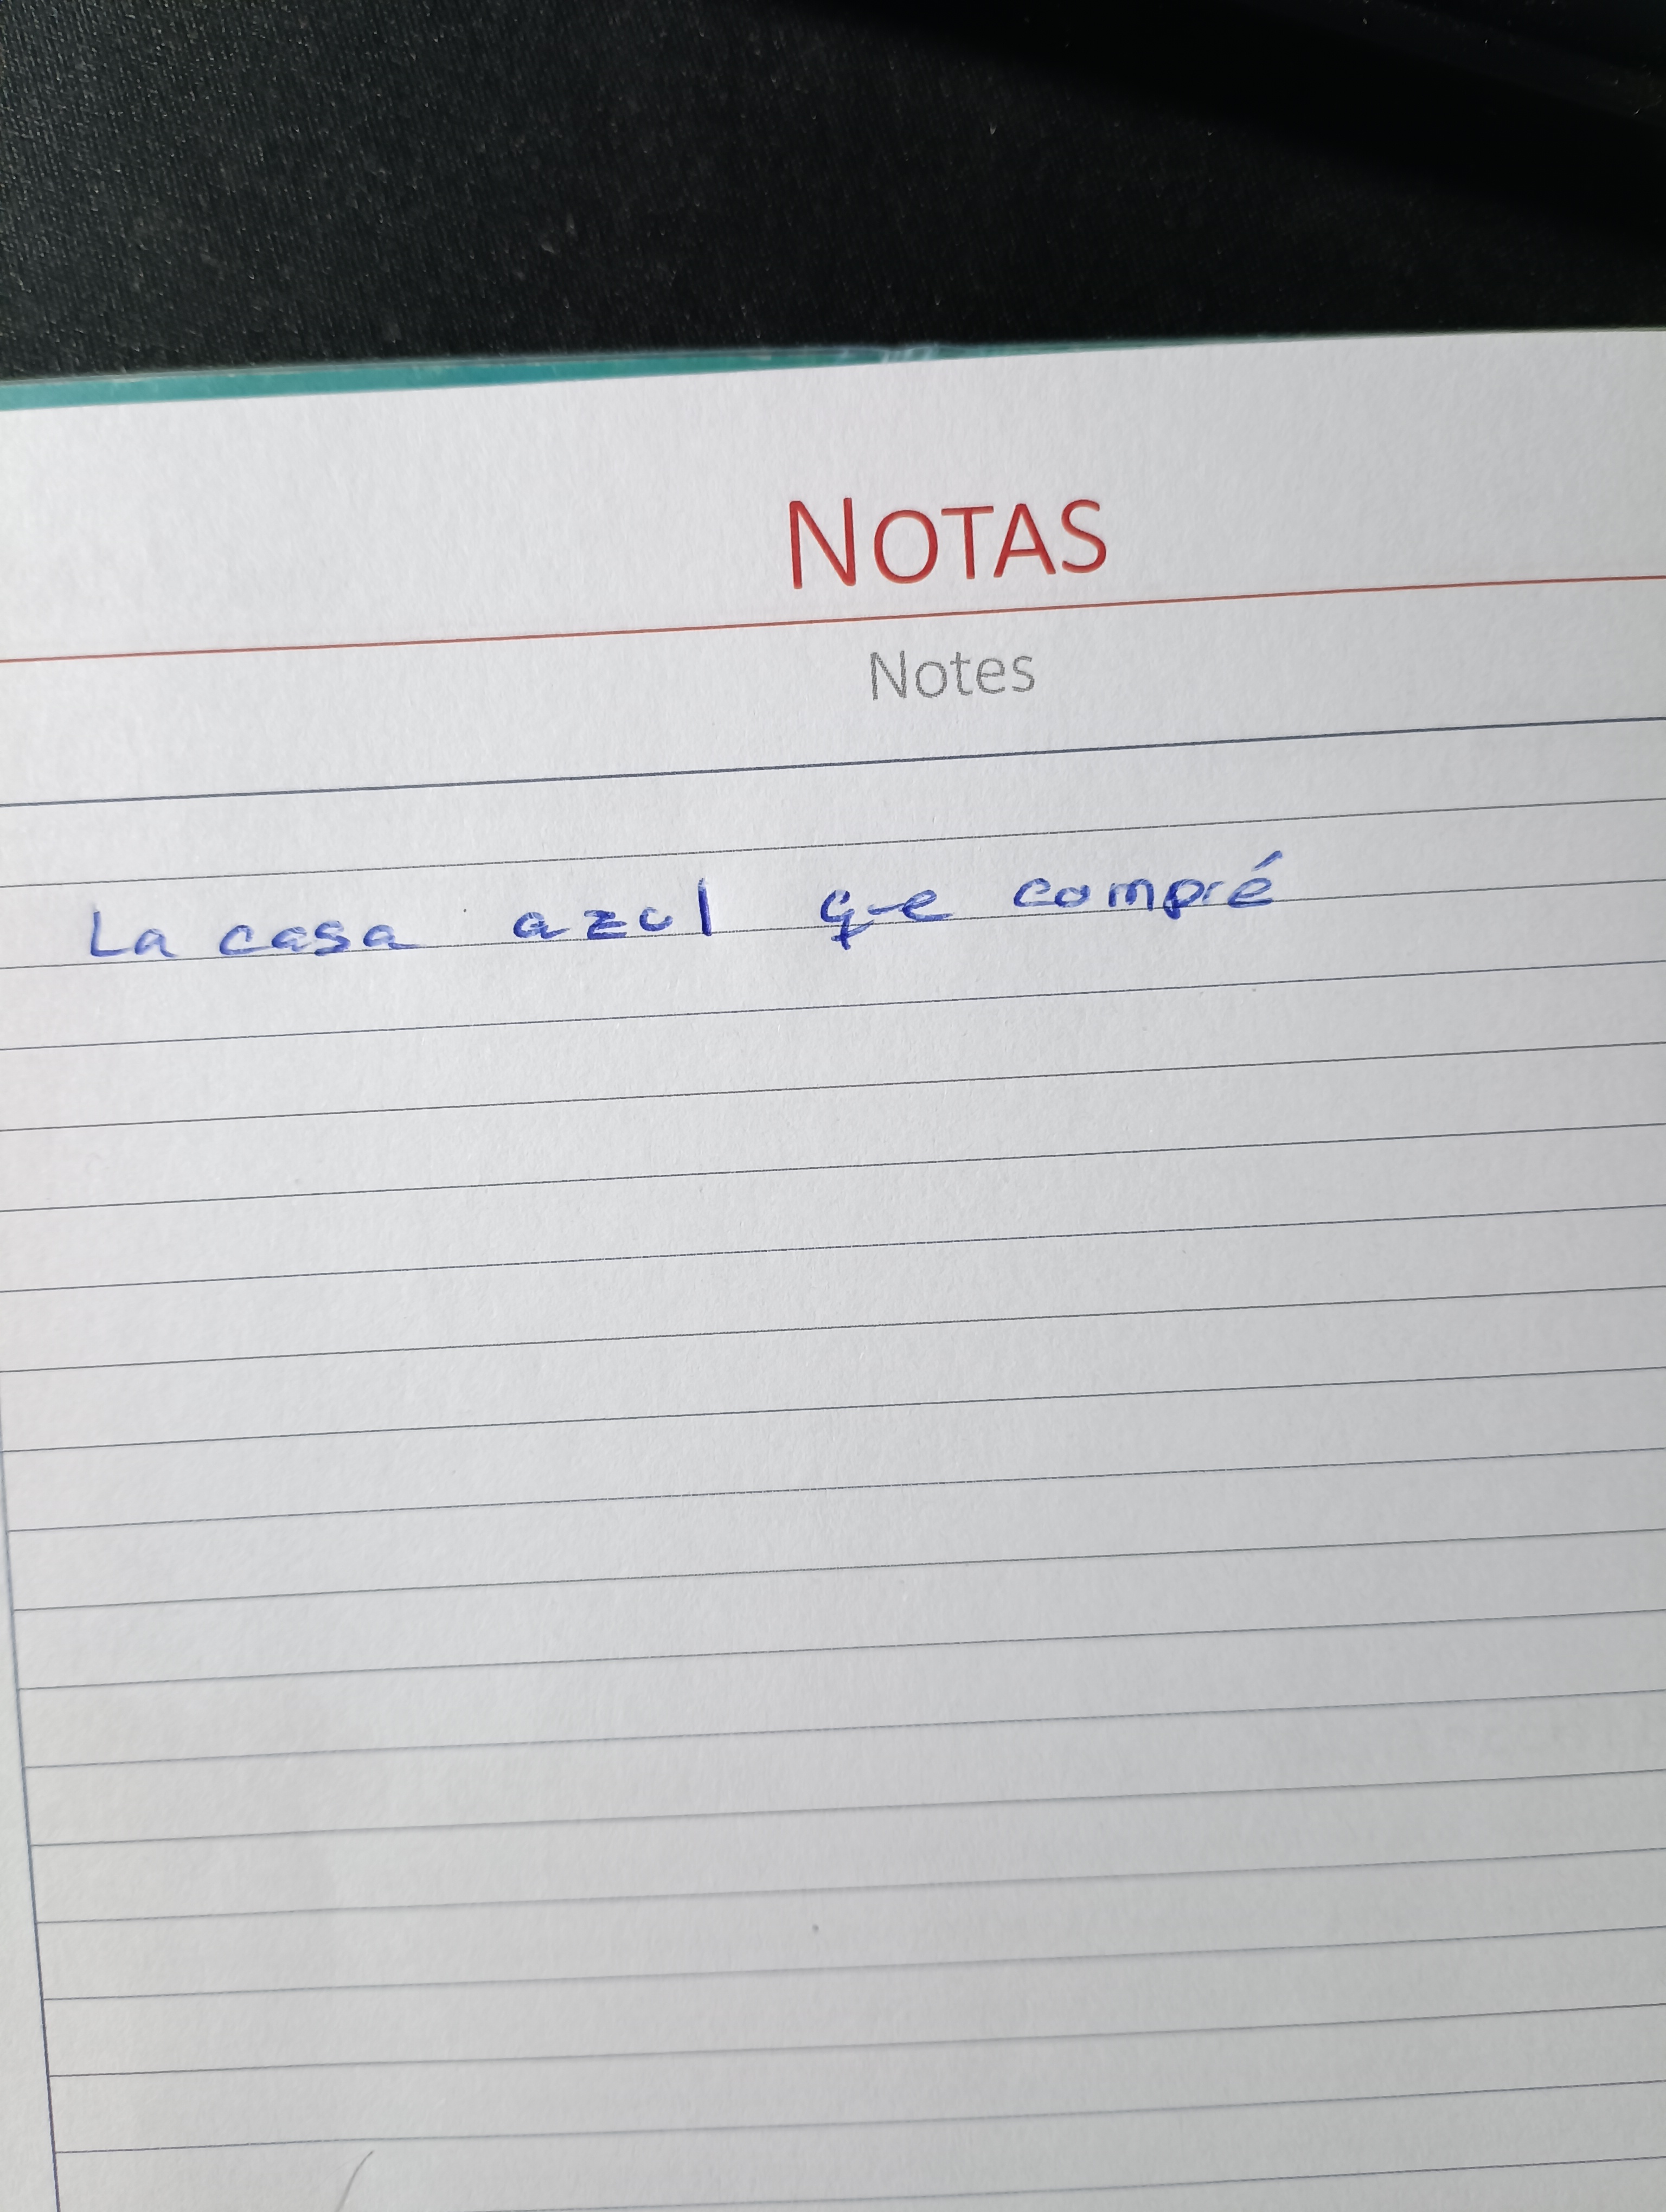 NOTAS
Notes
La casa azul que compré